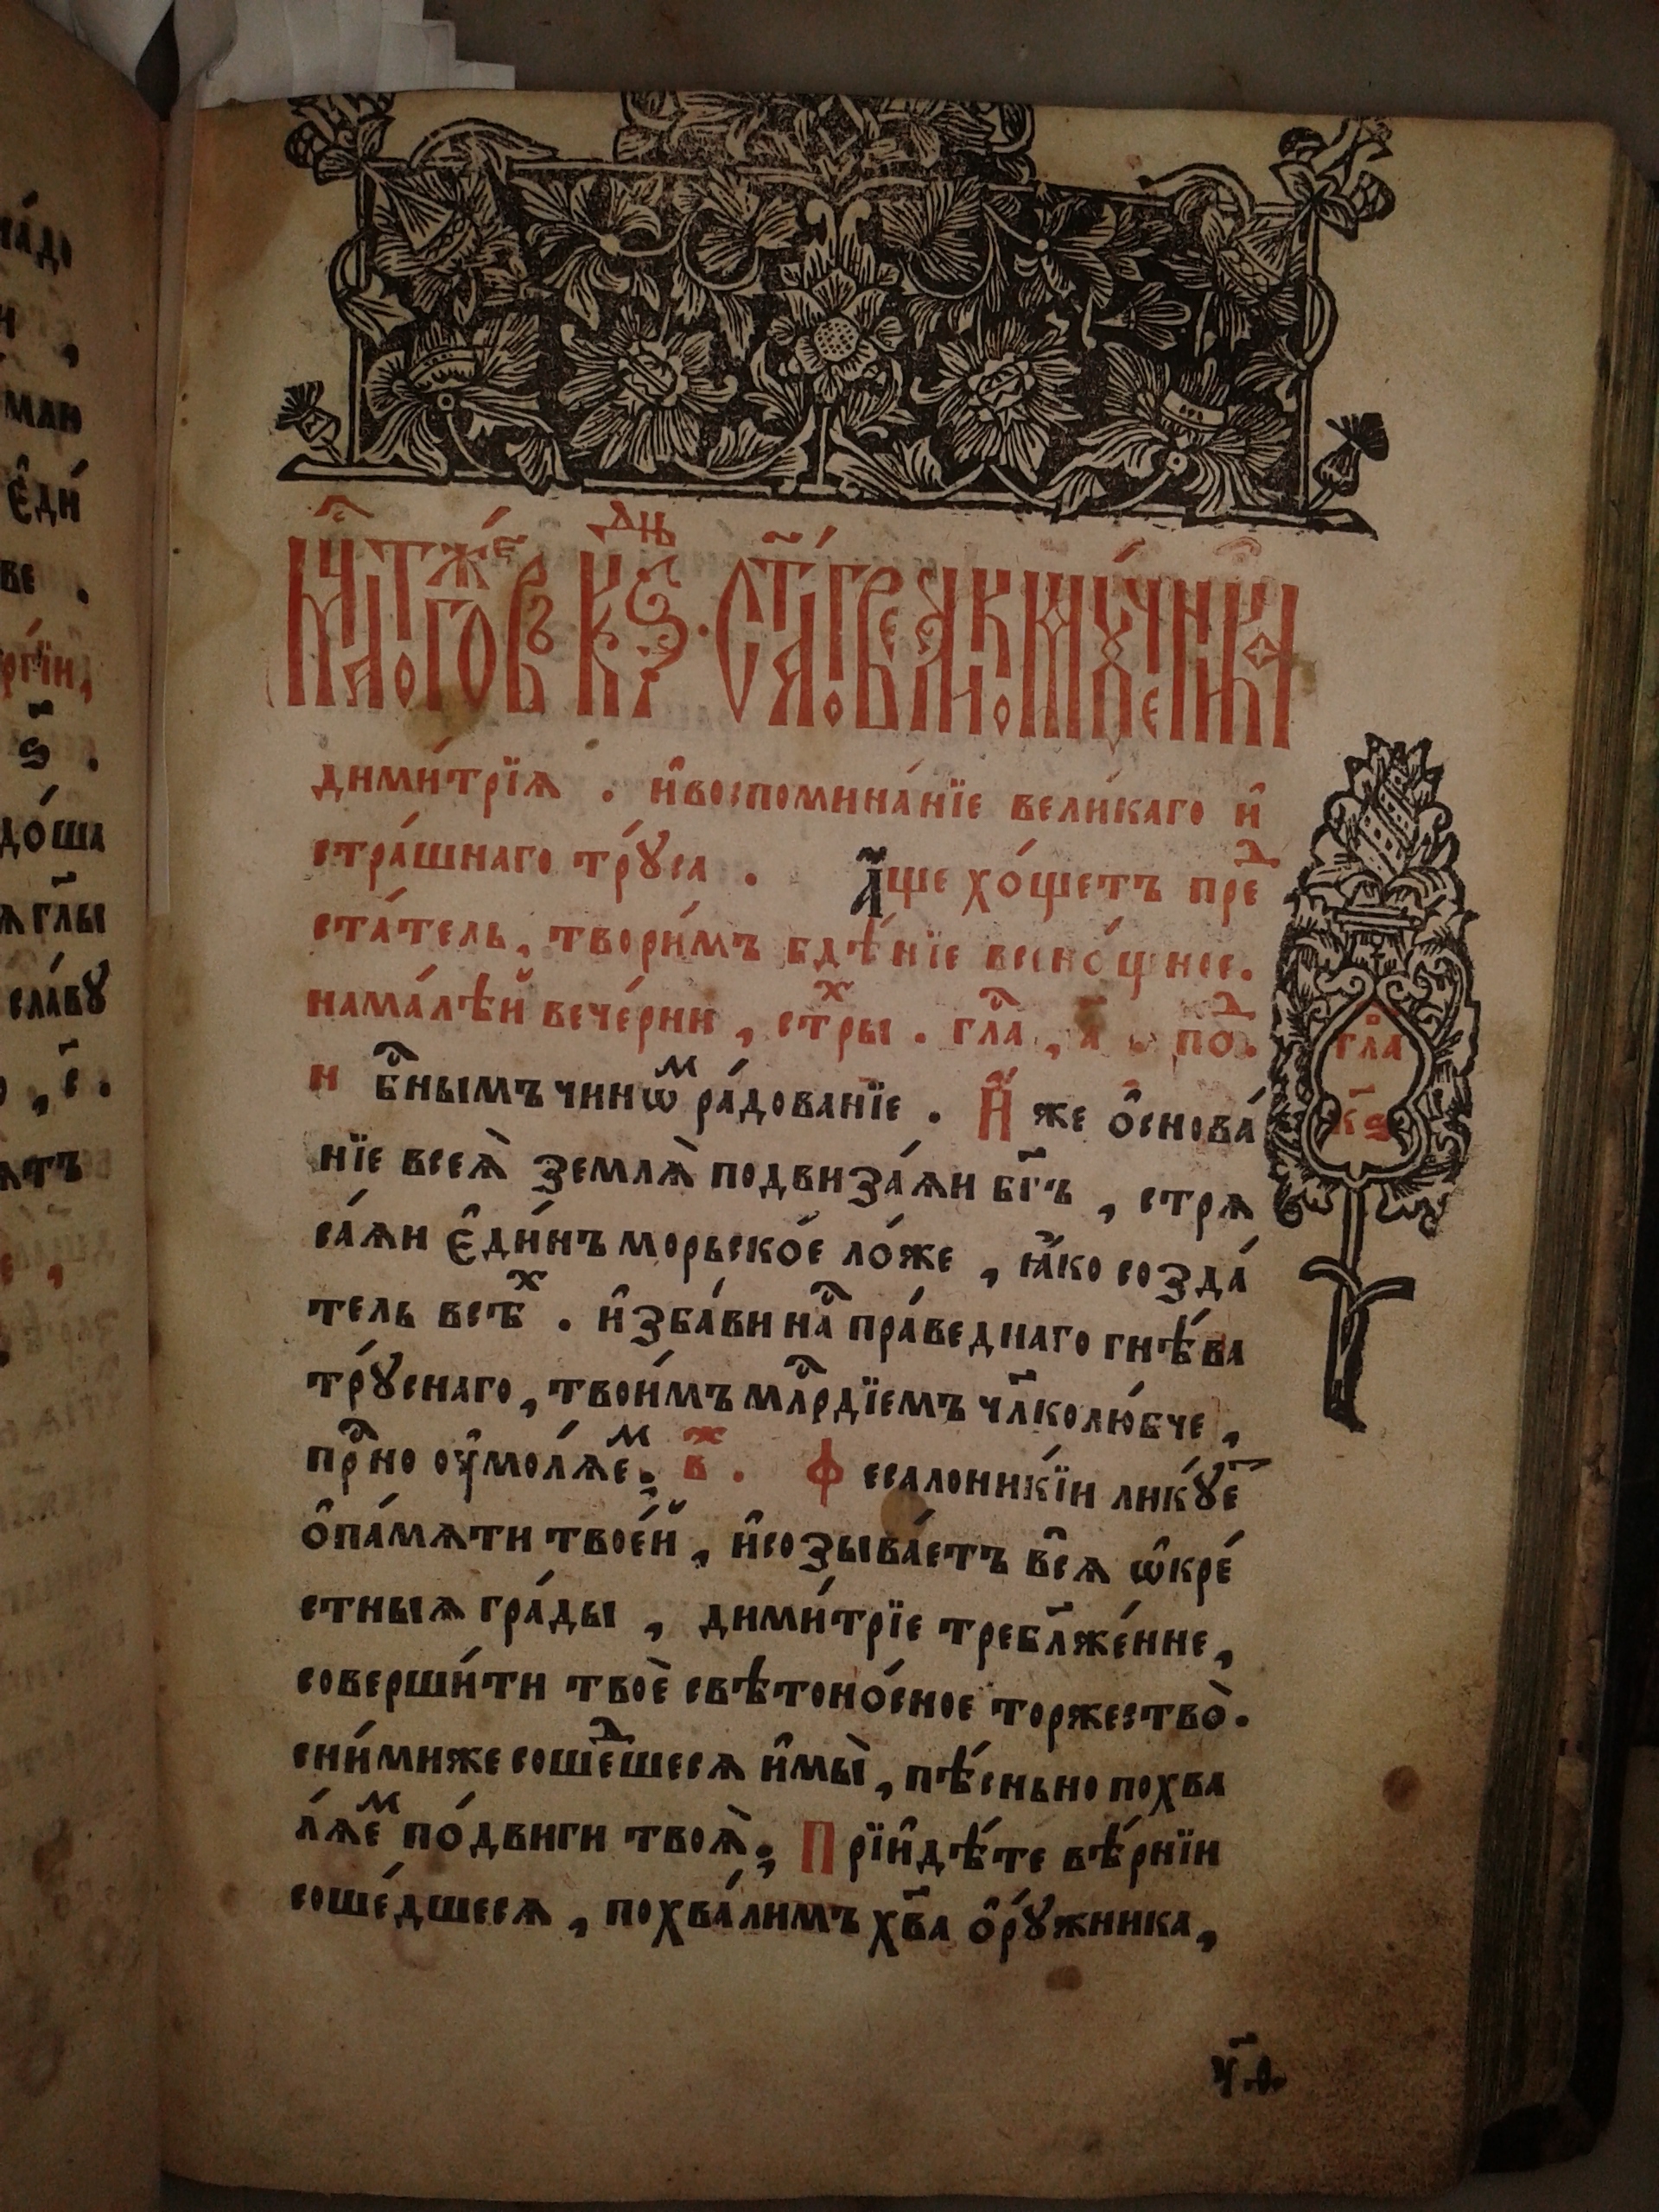 М꙽ца тогоже въ к҃ѕ дн҃ь. ст҃аго великомꙋ́ченика
дими́трїѧ . и҆воспомина́нїе вели́каго и҆
стра́шнаго трꙋ́са . А҆́ще хо́щетъ прⷣе
ста́тель, твори́мъ бдѣ́нїе всено́щнее.
нама́лѣй вече́рни , стⷯры . гла҇ , а҃ . поⷣ.
Н бⷭ҇нымъ чинѡⷨ ра́дованїе . И҆́ же ѻ҆снова́
нїе всеѧ̀ землѧ̀ подвиза́ѧи бг҃ъ , стрѧ
са́ѧи є҆ди́нъ морьско́е ло́же , ꙗ҆́ко созда́
тель всѣⷯ . и҆зба́ви на҇ пра́веднаго гнѣ́ва
трꙋ́снаго , твои́мъ млⷭ҇рдїемъ чл҃колю́бче ,
прⷭ҇но ᲂу҆молѧ́еⷨ . в҃ⷤ . Ф есалоники́и ликꙋ́е҃
ѻ҆па́мѧти твое́й , и҆созыва́етъ всѧ̑ ѡ҆кре́
стныѧ гра́ды , дими́трїе требл҃же́нне ,
соверши́ти твоѐ свѣтоно́сное торжество̀ .
сни́миже соше́ⷣшесѧ и҆мы̀ , пѣ́сньно похва
лѧ́еⷨ по́двиги твоѧ̀ . П рїи҆дѣ́те вѣ́рнїи
соше́дшесѧ , похва́лимъ хв҃а ѻ҆рꙋ́жника ,
гла҇
к҃ѕ